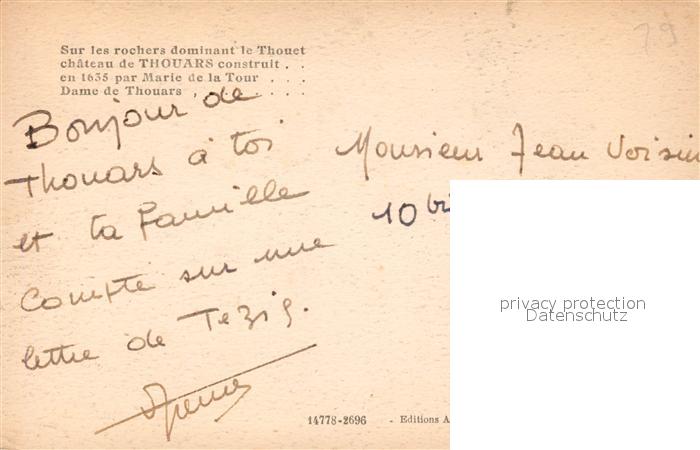 79
Sur les rochers dominant le Thouet
château de THOUARS construit . .
en 1635 par Marie de la Tour . . .
Dame de Thouars . . . . . . . .
Bonjour de
Thouars à toi
et ta famille
Compte sur une
lettre de
Monsieur Jean Voisin
10 bi
privacy protection
Datenschutz
14778-2696 - Editions A